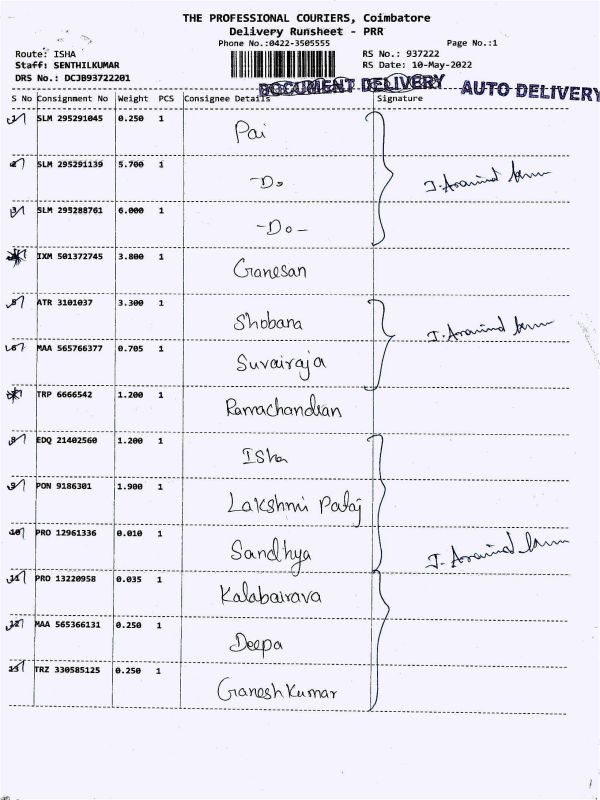 THE PROFESSIONAL COURIERS, Coimbatore
Delivery Runsheet - PRR
Phone No.:0422-3505555
Page No.:1
Route: ISHA
RS No.: 937222
Staff: SENTHILKUMAR
RS Date: 10-May-2022
DRS No.: DCJB93722201
DOCUMENT DELIVERY AUTO DELIVERY
S No Consignment No Weight PCS Consignee Details Signature
1 SLM 295291045 0.250 1 Pai
2 SLM 295291139 5.700 1 -Do
J. Aravind
3 SLM 295288761 6.000 1 -Do-
IXM 501372745 3.800 1 Ganesan
5 ATR 3101037 3.300 1 Shobana
J. Aravind
6 MAA 565766377 0.705 1 Suvairaja
TRP 6666542 1.200 1 Ramachandran
8 EDQ 21402560 1.200 1 Isha
9 PON 9186301 1.900 1 Lakshmi
10 PRO 12961336 0.010 1 Sandhya
J. Aravind
11 PRO 13220958 0.035 1 Kalabairava
12 MAA 565366131 0.250 1 Deepa
13 TRZ 330585125 0.250 1 Ganesh Kumar